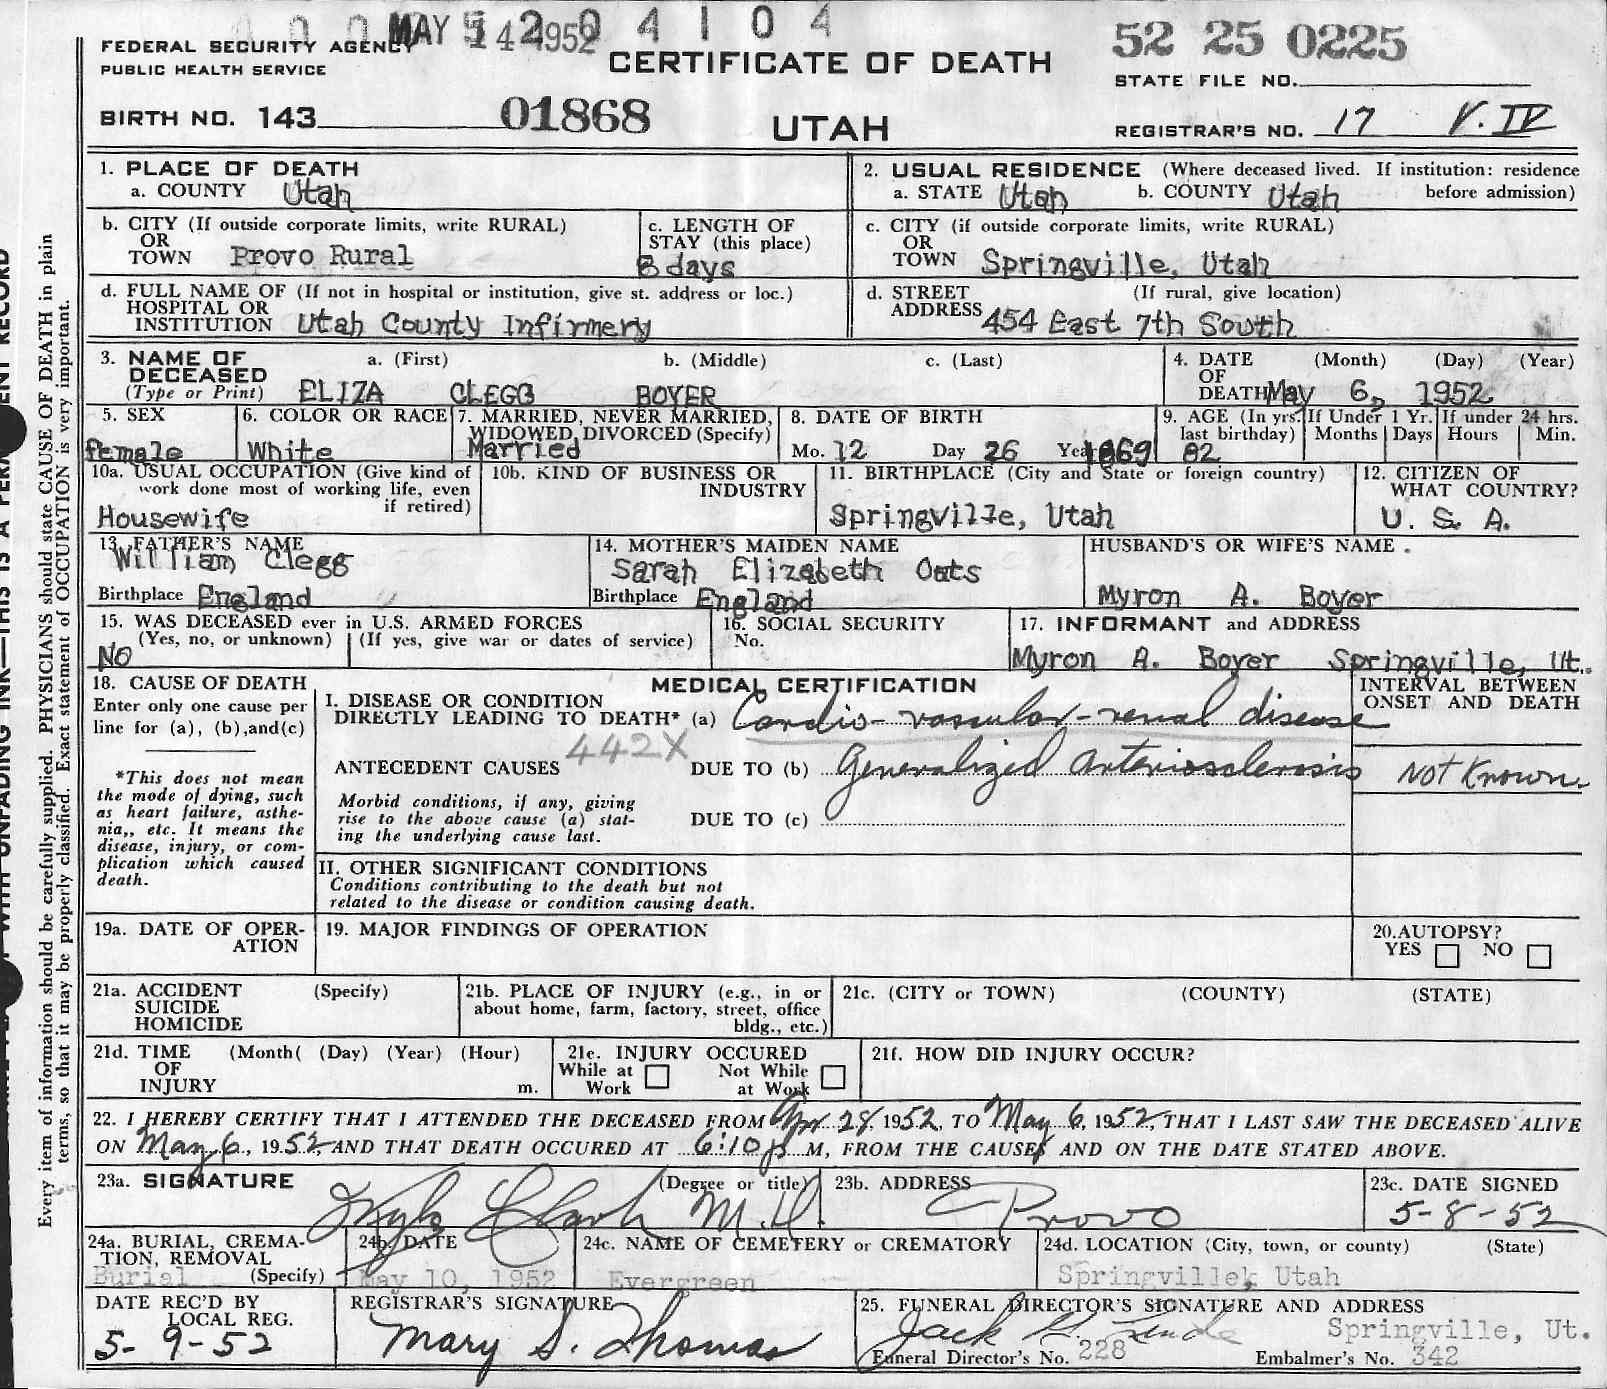 MAY 14 1952
52 04104
FEDERAL SECURITY AGENCY
PUBLIC HEALTH SERVICE
CERTIFICATE OF DEATH
52 25 0225
STATE FILE NO.
BIRTH NO. 143 01868
UTAH
REGISTRAR'S NO. 17 V. IV
1. PLACE OF DEATH
a. COUNTY Utah
2. USUAL RESIDENCE (Where deceased lived. If institution: residence before admission)
a. STATE Utah b. COUNTY Utah
b. CITY (If outside corporate limits, write RURAL)
OR
TOWN Provo Rural
c. LENGTH OF
STAY (this place)
8 days
c. CITY (if outside corporate limits, write RURAL)
OR
TOWN Springville, Utah
d. FULL NAME OF (If not in hospital or institution, give st. address or loc.)
HOSPITAL OR
INSTITUTION Utah County Infirmery
d. STREET (If rural, give location)
ADDRESS 454 East 7th South
3. NAME OF a. (First) b. (Middle) c. (Last)
DECEASED
(Type or Print) ELIZA CLEGG BOYER
4. DATE (Month) (Day) (Year)
OF
DEATH May 6, 1952
5. SEX
female
6. COLOR OR RACE
White
7. MARRIED, NEVER MARRIED,
WIDOWED, DIVORCED (Specify)
Married
8. DATE OF BIRTH
Mo. 12 Day 26 Year 1869
9. AGE (In yrs. last birthday) 82
If Under 1 Yr. Months Days
If under 24 hrs. Hours Min.
10a. USUAL OCCUPATION (Give kind of
work done most of working life, even
if retired)
Housewife
10b. KIND OF BUSINESS OR
INDUSTRY
11. BIRTHPLACE (City and State or foreign country)
Springville, Utah
12. CITIZEN OF
WHAT COUNTRY?
U. S. A.
13. FATHER'S NAME
William Clegg
Birthplace England
14. MOTHER'S MAIDEN NAME
Sarah Elizabeth Oats
Birthplace England
HUSBAND'S OR WIFE'S NAME .
Myron A. Boyer
15. WAS DECEASED ever in U.S. ARMED FORCES
(Yes, no, or unknown) (If yes, give war or dates of service)
No
16. SOCIAL SECURITY
No.
17. INFORMANT and ADDRESS
Myron A. Boyer Springville, Ut.
18. CAUSE OF DEATH
Enter only one cause per
line for (a), (b),and(c)
*This does not mean
the mode of dying, such
as heart failure, asthe-
nia,, etc. It means the
disease, injury, or com-
plication which caused
death.
MEDICAL CERTIFICATION
I. DISEASE OR CONDITION
DIRECTLY LEADING TO DEATH* (a) Cardio-vascular-renal disease
442X
ANTECEDENT CAUSES DUE TO (b) Generalized Arteriosclerosis
Morbid conditions, if any, giving
rise to the above cause (a) stat-
ing the underlying cause last.
DUE TO (c)
INTERVAL BETWEEN
ONSET AND DEATH
Not Known.
II. OTHER SIGNIFICANT CONDITIONS
Conditions contributing to the death but not
related to the disease or condition causing death.
19a. DATE OF OPER-
ATION
19. MAJOR FINDINGS OF OPERATION
20.AUTOPSY?
YES NO
21a. ACCIDENT (Specify)
SUICIDE
HOMICIDE
21b. PLACE OF INJURY (e.g., in or
about home, farm, factory, street, office
bldg., etc.)
21c. (CITY or TOWN) (COUNTY) (STATE)
21d. TIME (Month( (Day) (Year) (Hour)
OF
INJURY m.
21e. INJURY OCCURED
While at Work Not While at Work
21f. HOW DID INJURY OCCUR?
22. I HEREBY CERTIFY THAT I ATTENDED THE DECEASED FROM Apr 28, 1952, TO May 6, 1952, THAT I LAST SAW THE DECEASED ALIVE
ON May 6, 1952, AND THAT DEATH OCCURED AT 6:10 p M, FROM THE CAUSES AND ON THE DATE STATED ABOVE.
23a. SIGNATURE (Degree or title)
Clark M.D.
23b. ADDRESS
Provo
23c. DATE SIGNED
5-8-52
24a. BURIAL, CREMA-
TION, REMOVAL
(Specify)
Burial
24b. DATE
May 10, 1952
24c. NAME OF CEMETERY or CREMATORY
Evergreen
24d. LOCATION (City, town, or county) (State)
Springville, Utah
DATE REC'D BY
LOCAL REG.
5-9-52
REGISTRAR'S SIGNATURE
Mary S. Thomas
25. FUNERAL DIRECTOR'S SIGNATURE AND ADDRESS
Jack
Springville, Ut.
Funeral Director's No. 228 Embalmer's No. 342
Every item of information should be carefully supplied. PHYSICIANS should state CAUSE OF DEATH in plain
terms, so that it may be properly classified. Exact statement of OCCUPATION is very important.
WITH UNFADING INK—THIS IS A
RECORD